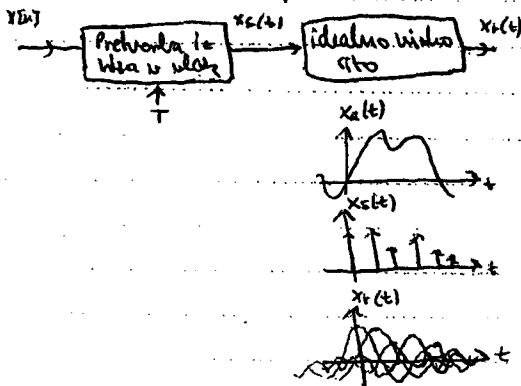 x[n]
Pretvorba iz
niza v vlak
xs(t)
idealno nizko
sito
xr(t)
T
xa(t)
t
xs(t)
t
xr(t)
t